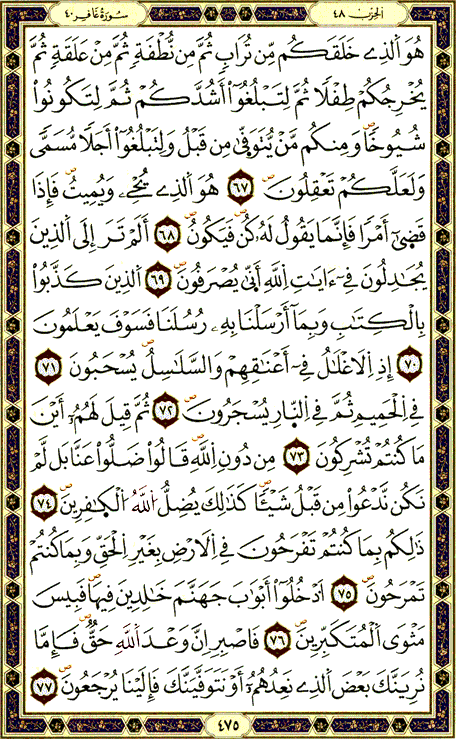 الحزب ٤٨
سورة غافر ٤٠
هُوَ اَلذِے خَلَقَكُم مِّن تُرَابٖ ثُمَّ مِن نُّطْفَةٖ ثُمَّ مِنْ عَلَقَةٖ ثُمَّ
يُخْرِجُكُمْ طِفْلاٗ ثُمَّ لِتَبْلُغُوٓاْ أَشُدَّكُمْ ثُمَّ لِتَكُونُواْ
شُيُوخاٗ وَمِنكُم مَّنْ يُّتَوَفّ۪يٰ مِن قَبْلُ وَلِتَبْلُغُوٓاْ أَجَلاٗ مُّسَمّيٗ
وَلَعَلَّكُمْ تَعْقِلُونَ ٦٧ هُوَ اَلذِے يُحْيِۦ وَيُمِيتُ فَإِذَا
قَض۪يٰٓ أَمْراٗ فَإِنَّمَا يَقُولُ لَهُۥ كُن فَيَكُونُ ٦٨ أَلَمْ تَرَ إِلَى اَلذِينَ
يُجَٰدِلُونَ فِےٓ ءَايَٰتِ اِللَّهِ أَنّ۪يٰ يُصْرَفُونَ ٦٩ اَلذِينَ كَذَّبُواْ
بِالْكِتَٰبِ وَبِمَآ أَرْسَلْنَا بِهِۦ رُسُلَنَا فَسَوْفَ يَعْلَمُونَ
٧٠ إِذِ اِلَاغْلَٰلُ فِےٓ أَعْنَٰقِهِمْ وَالسَّلَٰسِلُ يُسْحَبُونَ ٧١
فِے اِلْحَمِيمِ ثُمَّ فِے اِلنّ۪ارِ يُسْجَرُونَ ٧٢ ثُمَّ قِيلَ لَهُمُۥٓ أَيْنَ
مَا كُنتُمْ تُشْرِكُونَ ٧٣ مِن دُونِ اِللَّهِ قَالُواْ ضَلُّواْ عَنَّا بَل لَّمْ
نَكُن نَّدْعُواْ مِن قَبْلُ شَيْـٔاٗ كَذَٰلِكَ يُضِلُّ اُللَّهُ اُلْكٰ۪فِرِينَ ٧٤
ذَٰلِكُم بِمَا كُنتُمْ تَفْرَحُونَ فِے اِلَارْضِ بِغَيْرِ اِلْحَقِّ وَبِمَا كُنتُمْ
تَمْرَحُونَ ٧٥ اَدْخُلُوٓاْ أَبْوَٰبَ جَهَنَّمَ خَٰلِدِينَ فِيهَا فَبِيسَ
مَثْوَي اَلْمُتَكَبِّرِينَ ٧٦ فَاصْبِرِ اِنَّ وَعْدَ اَللَّهِ حَقٌّ فَإِمَّا
نُرِيَنَّكَ بَعْضَ اَلذِے نَعِدُهُمُۥٓ أَوْ نَتَوَفَّيَنَّكَ فَإِلَيْنَا يُرْجَعُونَ ٧٧
٤٧٥